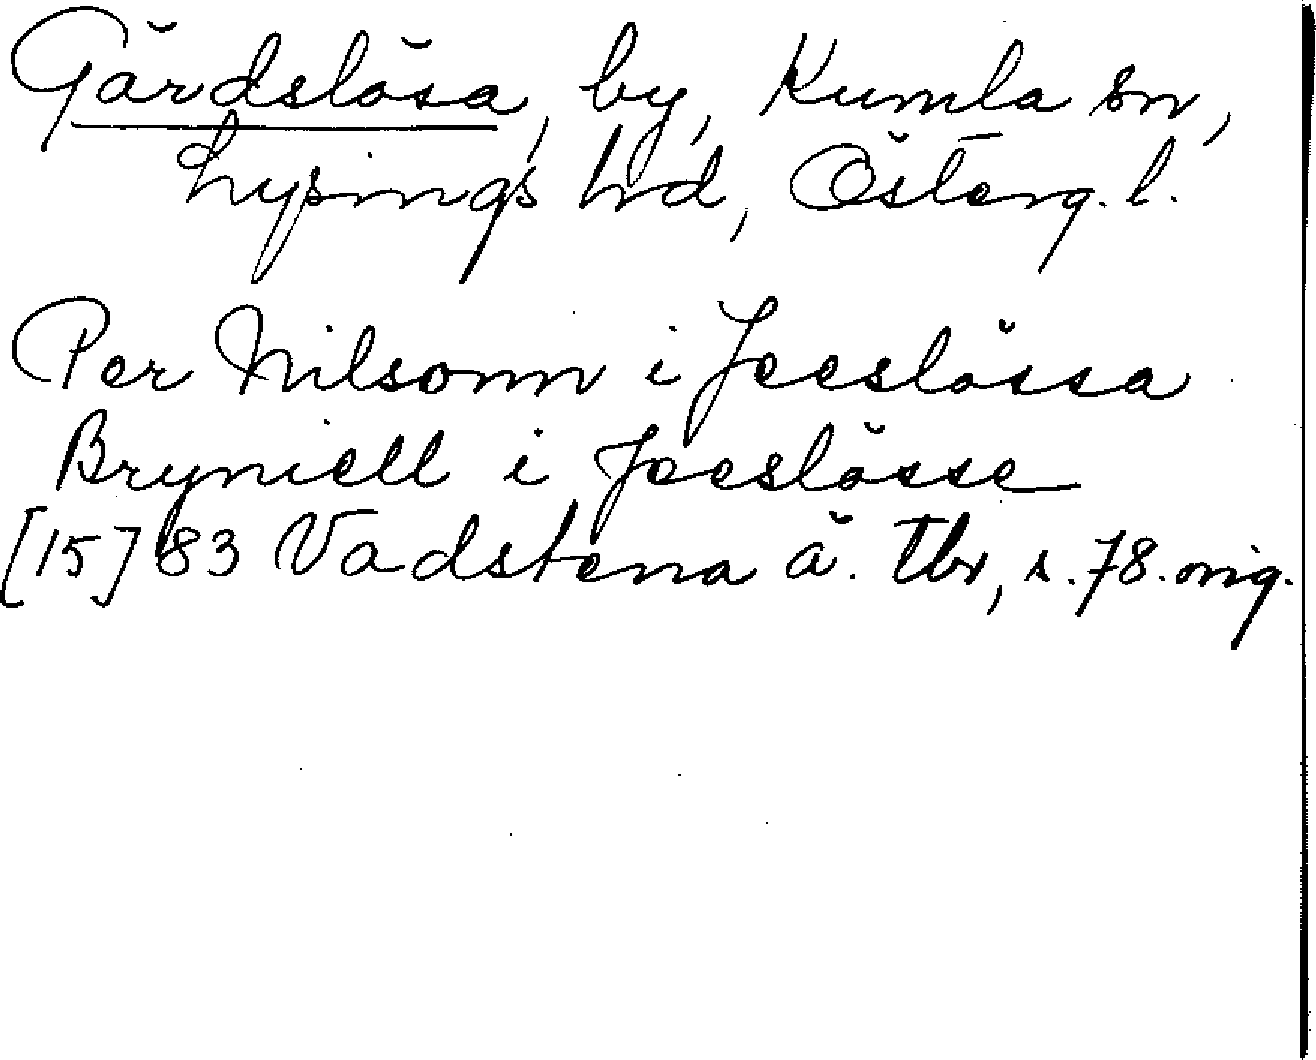 Gärdslösa, by, Kumla sn,
Lysings hd, Österg. l.
Per Nilsonn i Jeeslössa
Bryniell i Jeeslösse
[15]83 Vadstena ä. tbr, s. 78. orig.